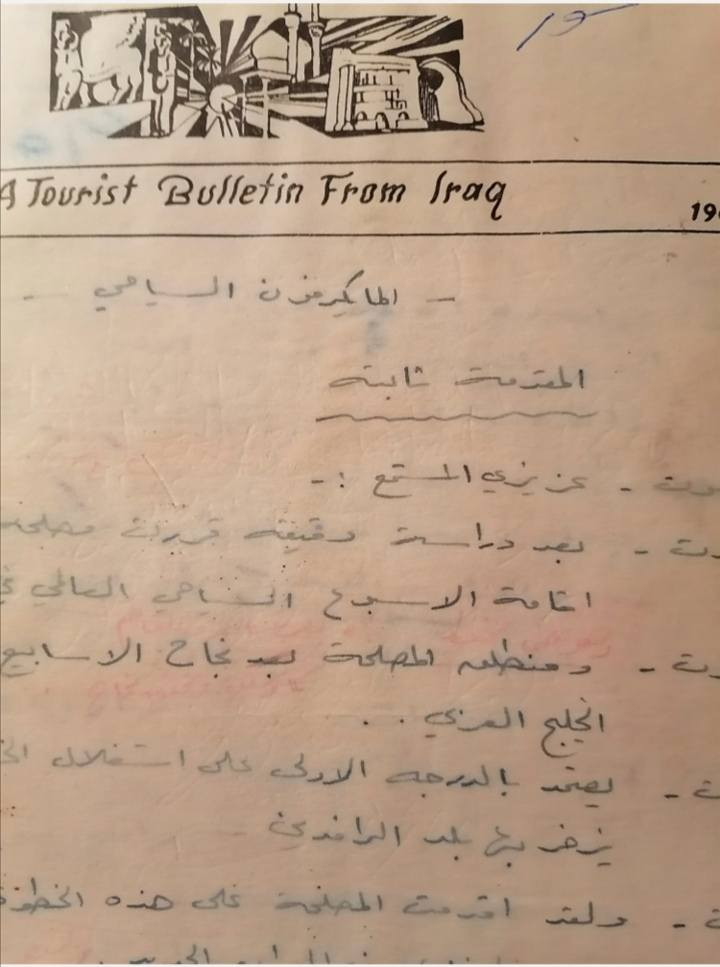 A Tourist Bulletin From Iraq
19
- الماكرفون السياحي -
المقدمة ثابته
عزيزي المستمع :-
- بعد دراسة دقيقه قررت مصلحة
اقامة الاسبوع السياحي العالمي
- ومنطلق المصلحة بعد نجاح الاسابيع
الخليج العربي . .
- يعتمد بالدرجه الاولى على استغلال
يزخر بها بلد الرافدين
- ولقد اقدمت المصلحة على هذه الخطوة